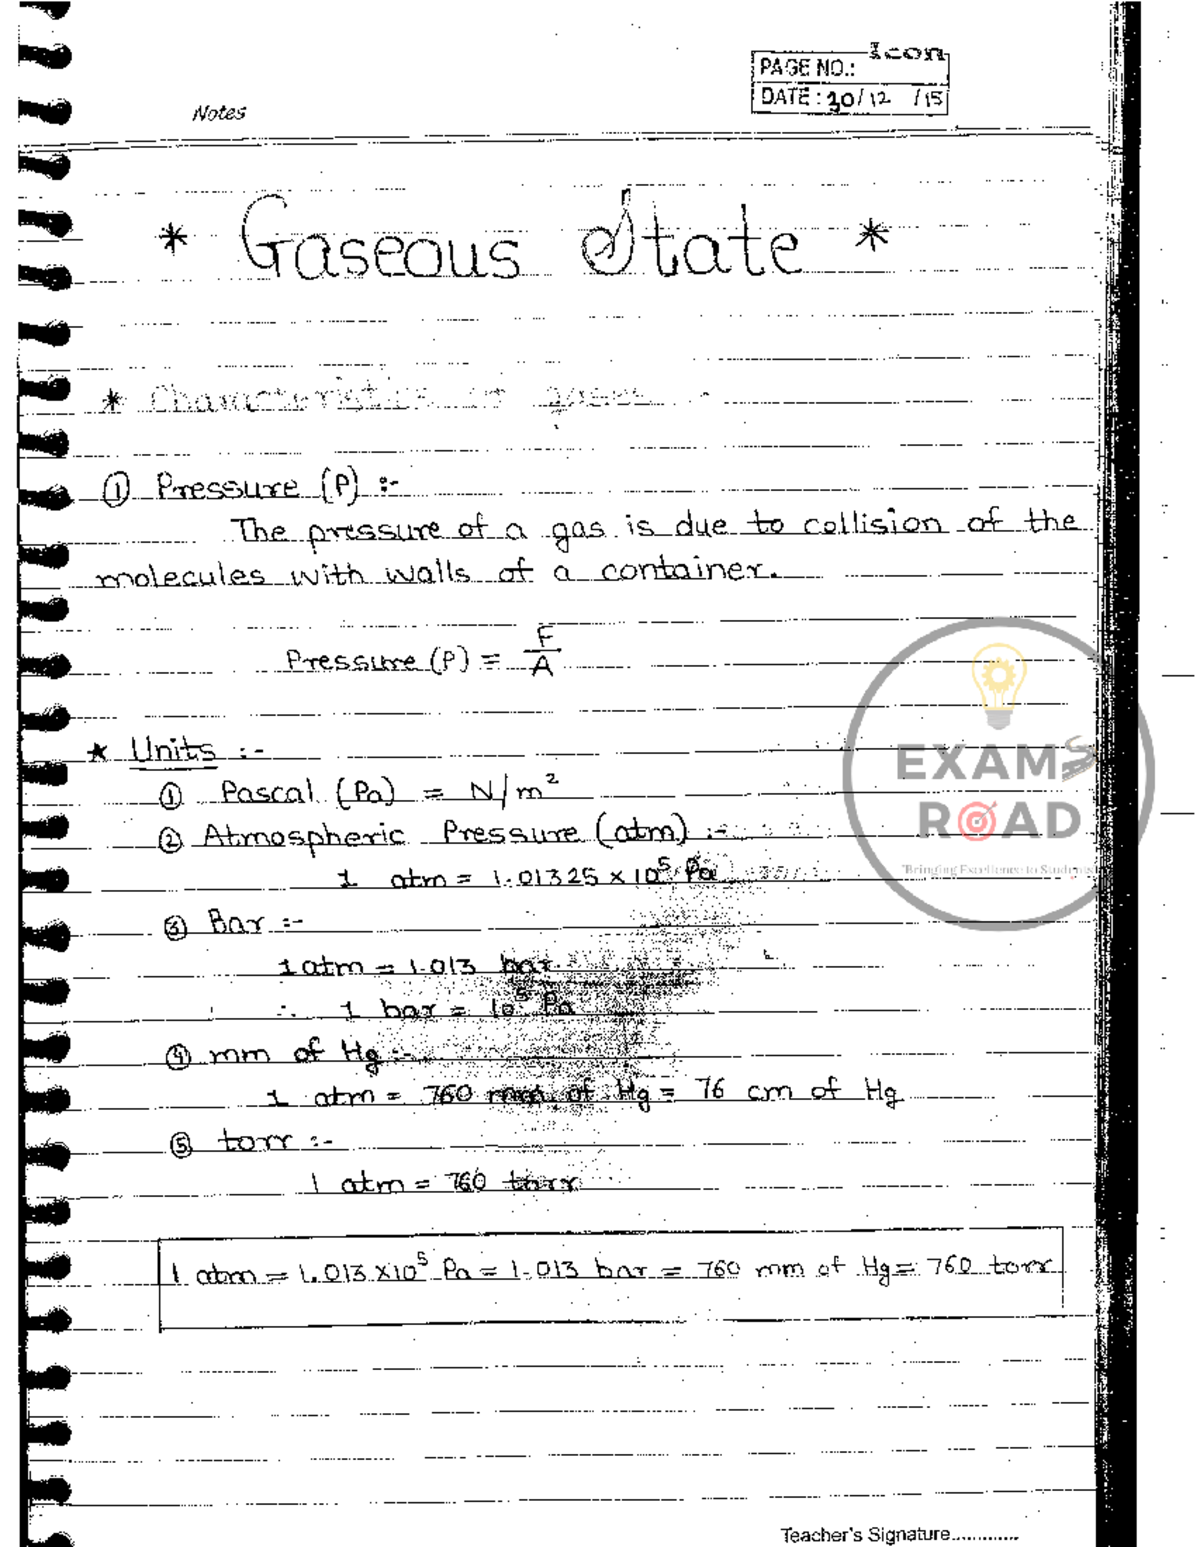 Icon
PAGE NO.:
DATE : 30/12 /15
Notes
* Gaseous State *
* Characteristics of gases :-
① Pressure (P) :-
The pressure of a gas is due to collision of the
molecules with walls of a container.
Pressure (P) = F/A
★ Units :-
① Pascal (Pa) = N/m²
② Atmospheric Pressure (atm) :-
1 atm = 1.01325 × 10⁵ Pa
③ Bar :-
1 atm = 1.013 bar
∴ 1 bar = 10⁵ Pa
④ mm of Hg :-
1 atm = 760 mm of Hg = 76 cm of Hg
⑤ torr :-
1 atm = 760 torr
1 atm = 1.013 ×10⁵ Pa = 1.013 bar = 760 mm of Hg = 760 torr
EXAMS
ROAD
"Bringing Excellence to Students
Teacher's Signature.............